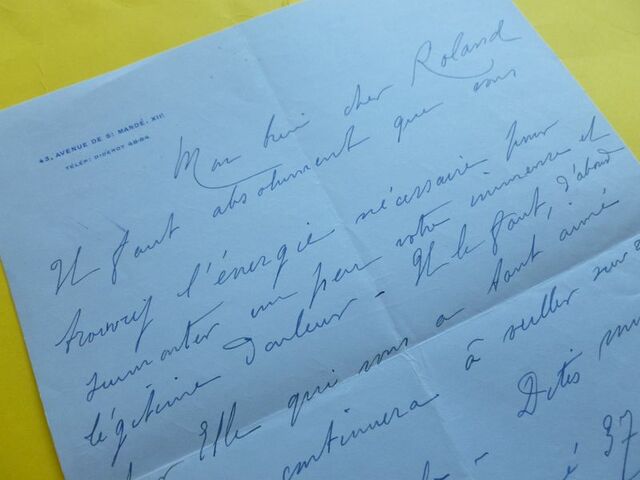 43, AVENUE DE ST MANDÉ, XIIE
TÉLÉP: DIDEROT 48-84
Mon bien cher Roland
Il faut absolument que vous
trouviez l'énergie nécessaire pour
surmonter un peu votre immense et
légitime douleur - Il le faut, d'abord
Elle qui vous a tant aimé
continuera à veiller sur
Dites
37